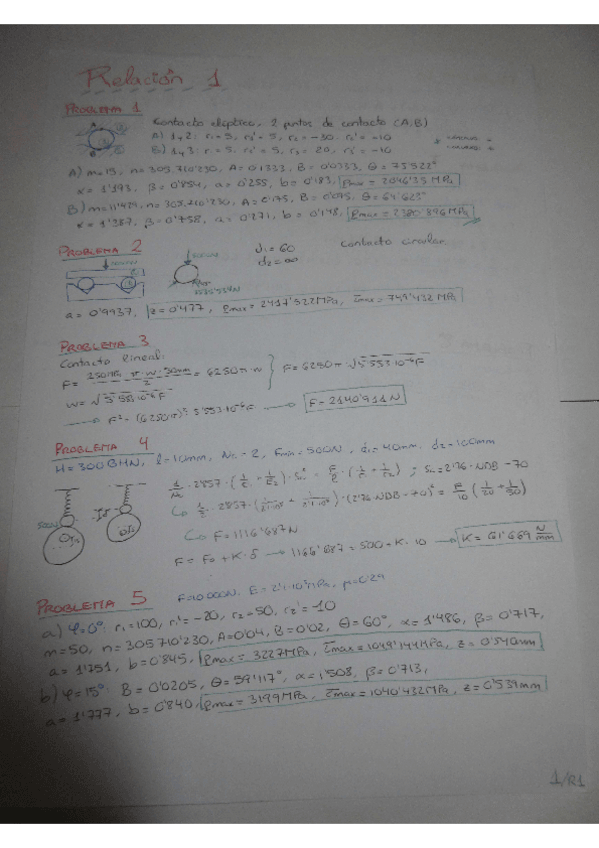 Relación 1
PROBLEMA 1
Contacto elíptico, 2 puntos de contacto (A,B)
A) 1,2: r₁=5, r₁'=5, r₂=-30, r₂'=-10
B) 1,3: r₁=5, r₁'=5, r₂=20, r₂'=-10
A) m=15, n=305'710'230, A=0'1333, B=0'0333, θ=75'522°
α=1'193, β=0'854, a=0'255, b=0'183, Pmax=2046'35 MPa
α=1'387, β=0'758, a=0'271, b=0'148, Pmax=2380'896 MPa
PROBLEMA 2
d₁=60
d₂=∞
Contacto circular
a=0'9937, z=0'477, Pmax=2417'522 MPa, τmax=749'432 MPa
PROBLEMA 3
Contacto lineal:
F = 250MPa · π·w·50mm / 2 = 6250π·w } F=6250π·√5'553·10⁻⁶F
w=√5'553·10⁻⁶F
→ F²=(6250π)²·5'553·10⁻⁶F → F=2140'911N
PROBLEMA 4
H=300BHN, l=10mm, N=2, Fmin=500N, d₁=40mm, d₂=100mm
F=1116'687N
F=F₀+K·δ → 1166'687=500+K·10 → K=61'669 N/mm
PROBLEMA 5
F=10000N, E=2'1·10⁵MPa, μ=0'29
a) φ=0°: r₁=100, r₁'=-20, r₂=50, r₂'=-10
m=50, n=305'710'230, A=0'04, B=0'02, θ=60°, α=1'486, β=0'717,
a=1'751, b=0'845, Pmax=3227MPa, τmax=1049'144MPa, z=0'540mm
b) φ=15°: B=0'0205, θ=59'117°, α=1'508, β=0'713,
a=1'777, b=0'840, Pmax=3199MPa, τmax=1040'432MPa, z=0'539mm
1/R1